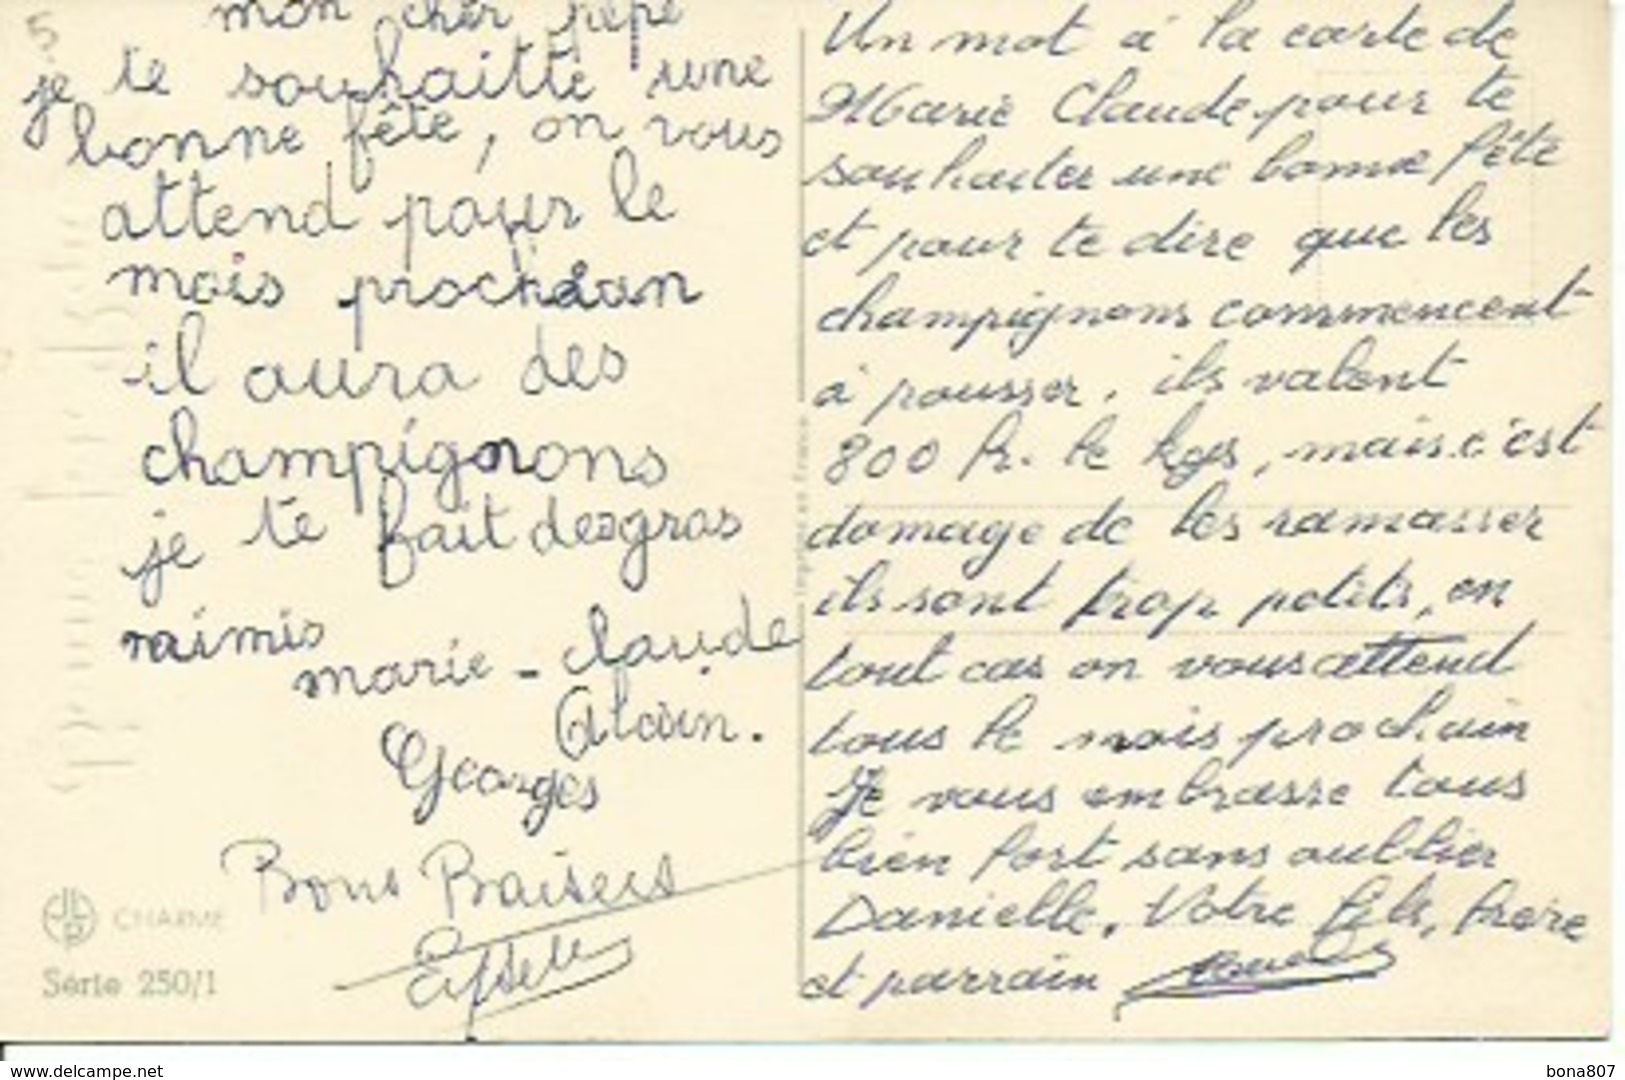 5
mon cher pépé
je te souhaitte une
bonne fête, on vous
attend pour le
mois prochian
il aura des
champignons
je te fait des gras
mimis
marie-claude
Alain.
Georges
Bons Baisers
JLP CHARME
Série 250/1
Imprimé en France
Un mot à la carte de
Marie Claude pour te
souhaiter une bonne fête
et pour te dire que les
champignons commencent
à pousser, ils valent
800 fr. le kgs, mais c'est
domage de les ramasser
ils sont trop petits, en
tout cas on vous attend
tous le mois prochain
Je vous embrasse tous
bien fort sans oublier
Danielle. Votre fils, frère
et parrain
www.delcampe.net
bona807